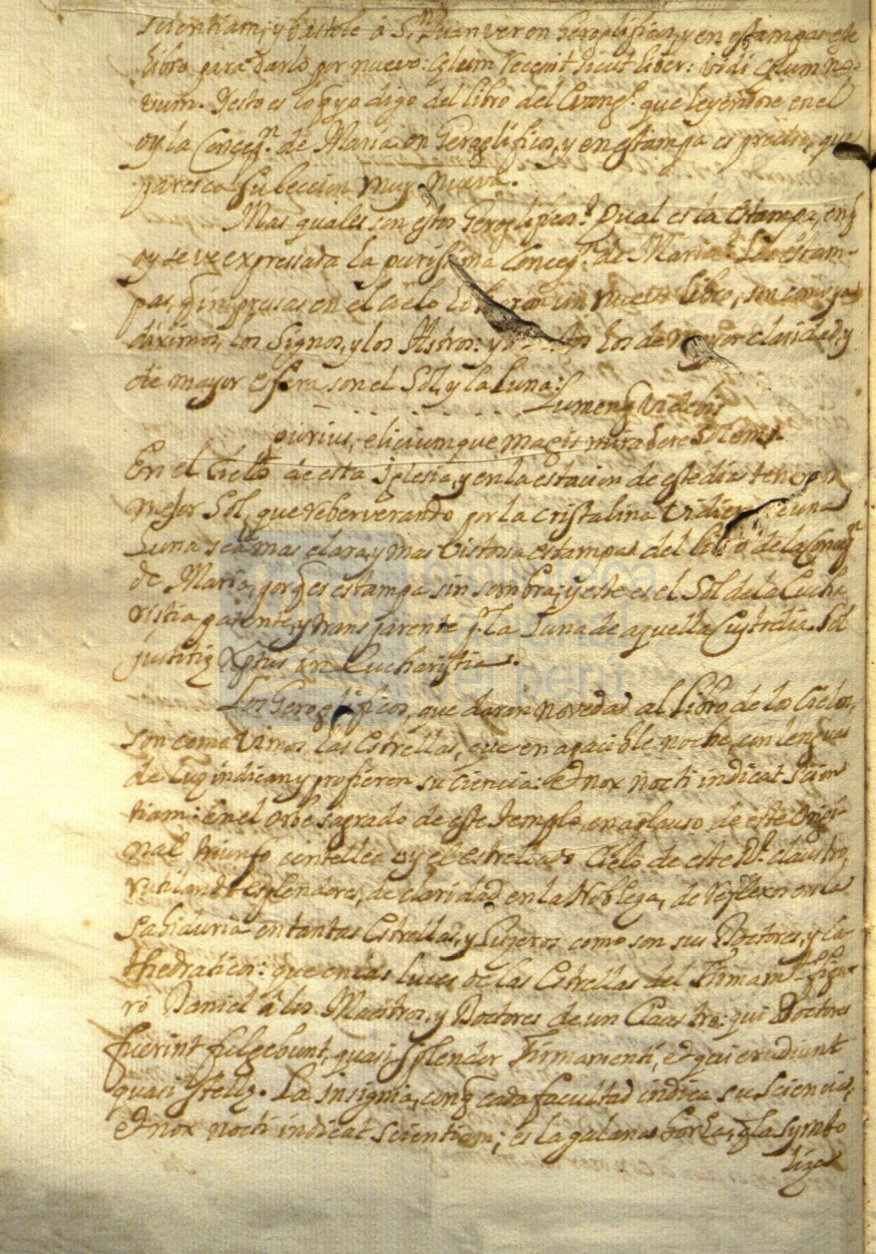 scientiam; y bastele á S.n Juan ver en Geroglificos, y en estampas este
libro para darlo por nuevo: Cęlum recessit sicut liber: vidi Cęlum no-
vum. Y esto es lo q yo digo del libro del Evang.o que leyendose en el
oy la Concepn. de Maria en Geroglificos, y en estampa es preciso, que
paresca su leccion muy nueva.
Mas quales son estos Geroglificos? Qual es la estampa, en q
oy se ve expressada la purissima Concepn. de Maria? Las estam-
pas, q impresas en el cielo un nuevo libro, son como ya
diximos, los Signos, y los Astros: y los de mayor claridad, y
de mayor esfera son el Sol, y la Luna:
Lumenq videbis
purius,
En el Cielo de esta Iglesia, y en la estacion de este dia tenemos
mejor Sol, que reberverando por la cristalina vidriera de una
Luna sea mas clara, y mas vistosa estampa del libro de la Concepn.
de Maria, porq es estampa sin sombra; y este es el Sol de la Eucha
ristia patente, y transparente pr. la Luna de aquella Custodia. Sol
justitię Xptus in Eucharistia.
Los Geroglificos, que daran novedad al libro de los Cielos,
son como vimos, las Estrellas, que en apacible noche, con lenguas
de luz indican, y profieren su ciencia: Et nox nocti indicat scien
tiam: en el orbe sagrado de este Templo, en aplauso de este Origi-
nal triunfo centellea oy el estrellado Cielo de este Rl. claustro,
rutilando esplendores, de claridad en la Nobleza, de reflexos en la
sabiduria en tantas Estrellas, y Luzeros como son sus Doctores, y ca
thedraticos: que en las luces de las Estrellas del Firmamto. figu
ró Daniel á los Maestros, y Doctores de un Claustro: qui Doctores
fuerint fulgebunt, quasi splendor Firmamenti, et qui erudiunt
quasi stellę. La insignia, con q cada facultad indica su sciencia,
Et nox nocti indicat scientiam; es la galana borla, q la symbo
liza